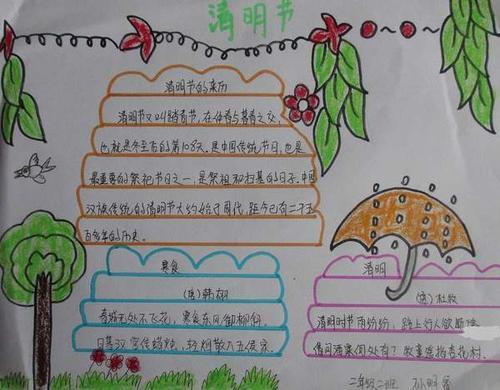 清明节
清明节的来历
清明节又叫踏青节,在仲春与暮春之交,
也就是冬至后的第108天.是中国传统节日,也是
最重要的祭祀节日之一,是祭祖和扫墓的日子.中国
汉族传统的清明节大约始于周代,距今已有二千五
百多年的历史.
寒食
(唐)韩翃
春城无处不飞花,寒食东风御柳斜.
日暮汉宫传蜡烛,轻烟散入五侯家.
清明
(唐)杜牧
清明时节雨纷纷,路上行人欲断
借问酒家何处有?牧童遥指杏花村.
二年级二班 孙明